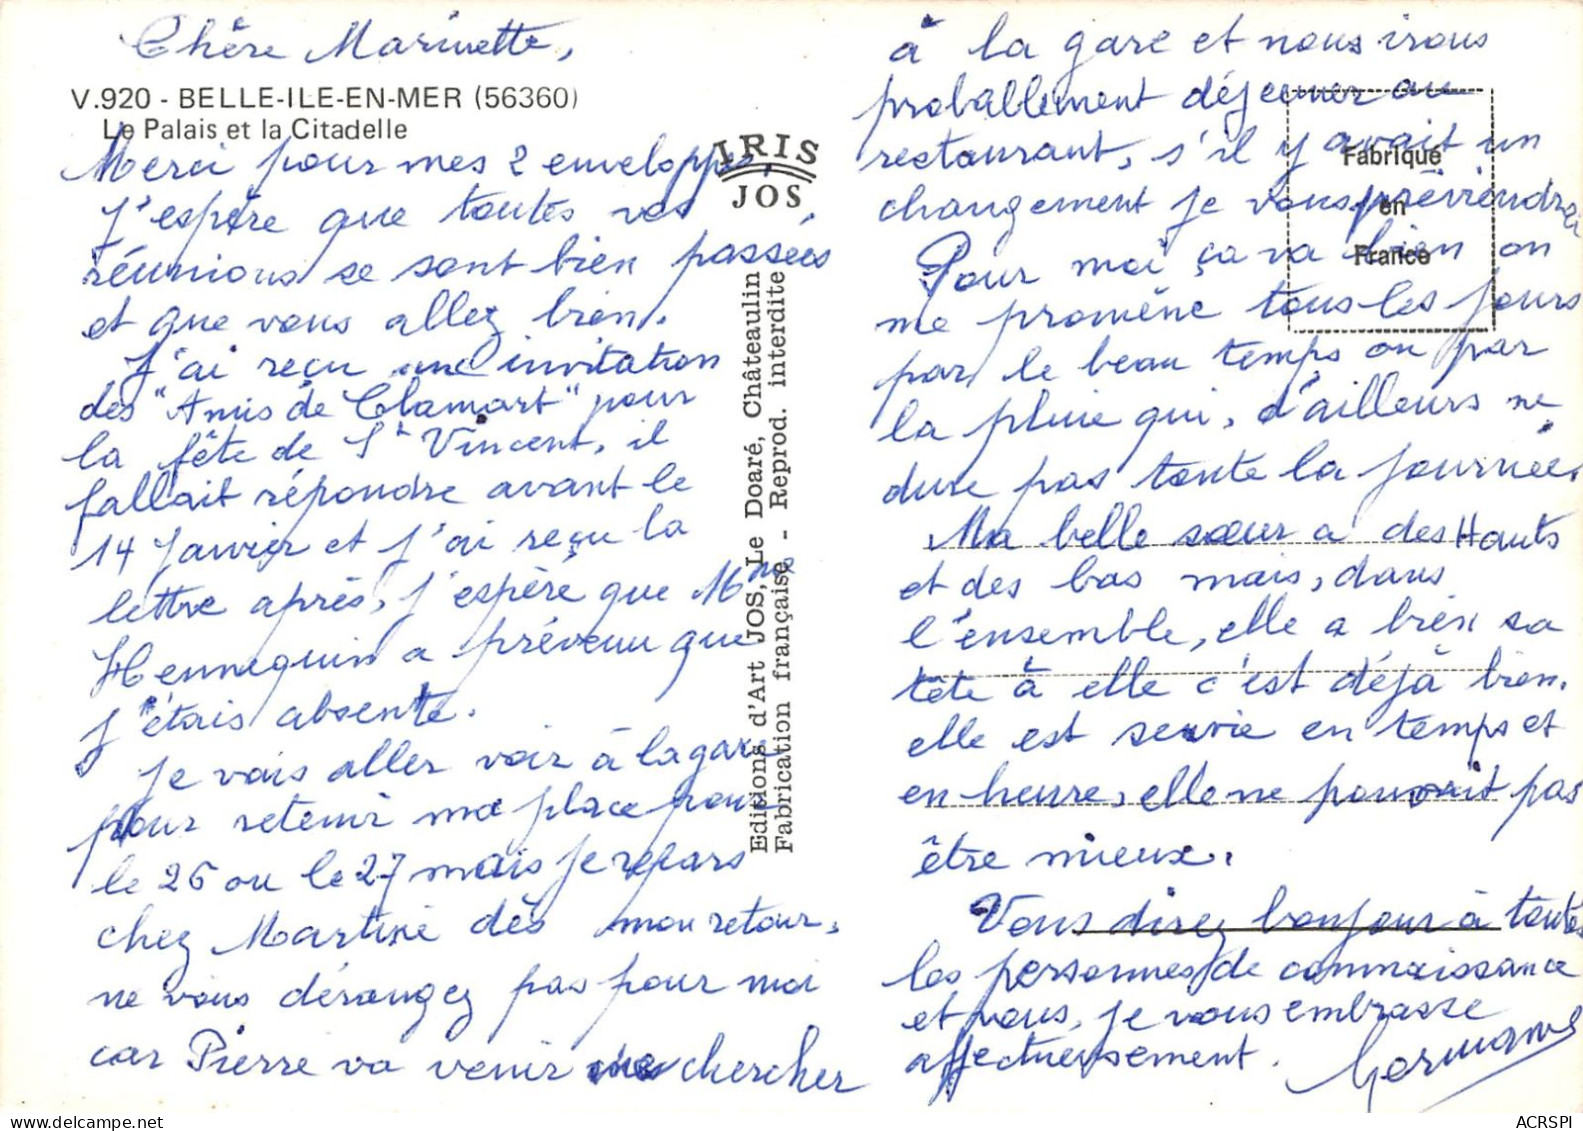 Chère Marinette,
V.920 - BELLE-ILE-EN-MER (56360)
Le Palais et la Citadelle
Merci pour mes 2 enveloppes,
J'espère que toutes vos
réunions se sont bien passées
et que vous allez bien.
J'ai reçu une invitation
des "Amis de Clamart" pour
la fête de St Vincent, il
fallait répondre avant le
14 Janvier et j'ai reçu la
lettre après, j'espère que Mme
Hennequin a prévenu que
j'étais absente.
Je vais aller voir à la gare
pour retenir ma place pour
le 26 ou le 27 mais je repars
chez Martine dès mon retour,
ne vous dérangez pas pour moi
car Pierre va venir me chercher
IRIS
JOS
Editions d'Art JOS, Le Doaré, Châteaulin
Fabrication française - Reprod. interdite
à la gare et nous irons
proballement déjeuner au
restaurant, s'il y avait un
changement je vous préviendrai
Pour moi ça va bien on
me promène tous les jours
par le beau temps ou par
la pluie qui, d'ailleurs ne
dure pas toute la journée.
Ma belle sœur a des Hauts
et des bas mais, dans
l'ensemble, elle a bien sa
tête à elle c'est déjà bien.
elle est servie en temps et
en heure, elle ne pouvait pas
être mieux.
Vous direz bonjour à toutes
les personnes de connaissance
et vous, je vous embrasse
affectueusement. Germaine
Fabriqué
en
France
ACRSPI